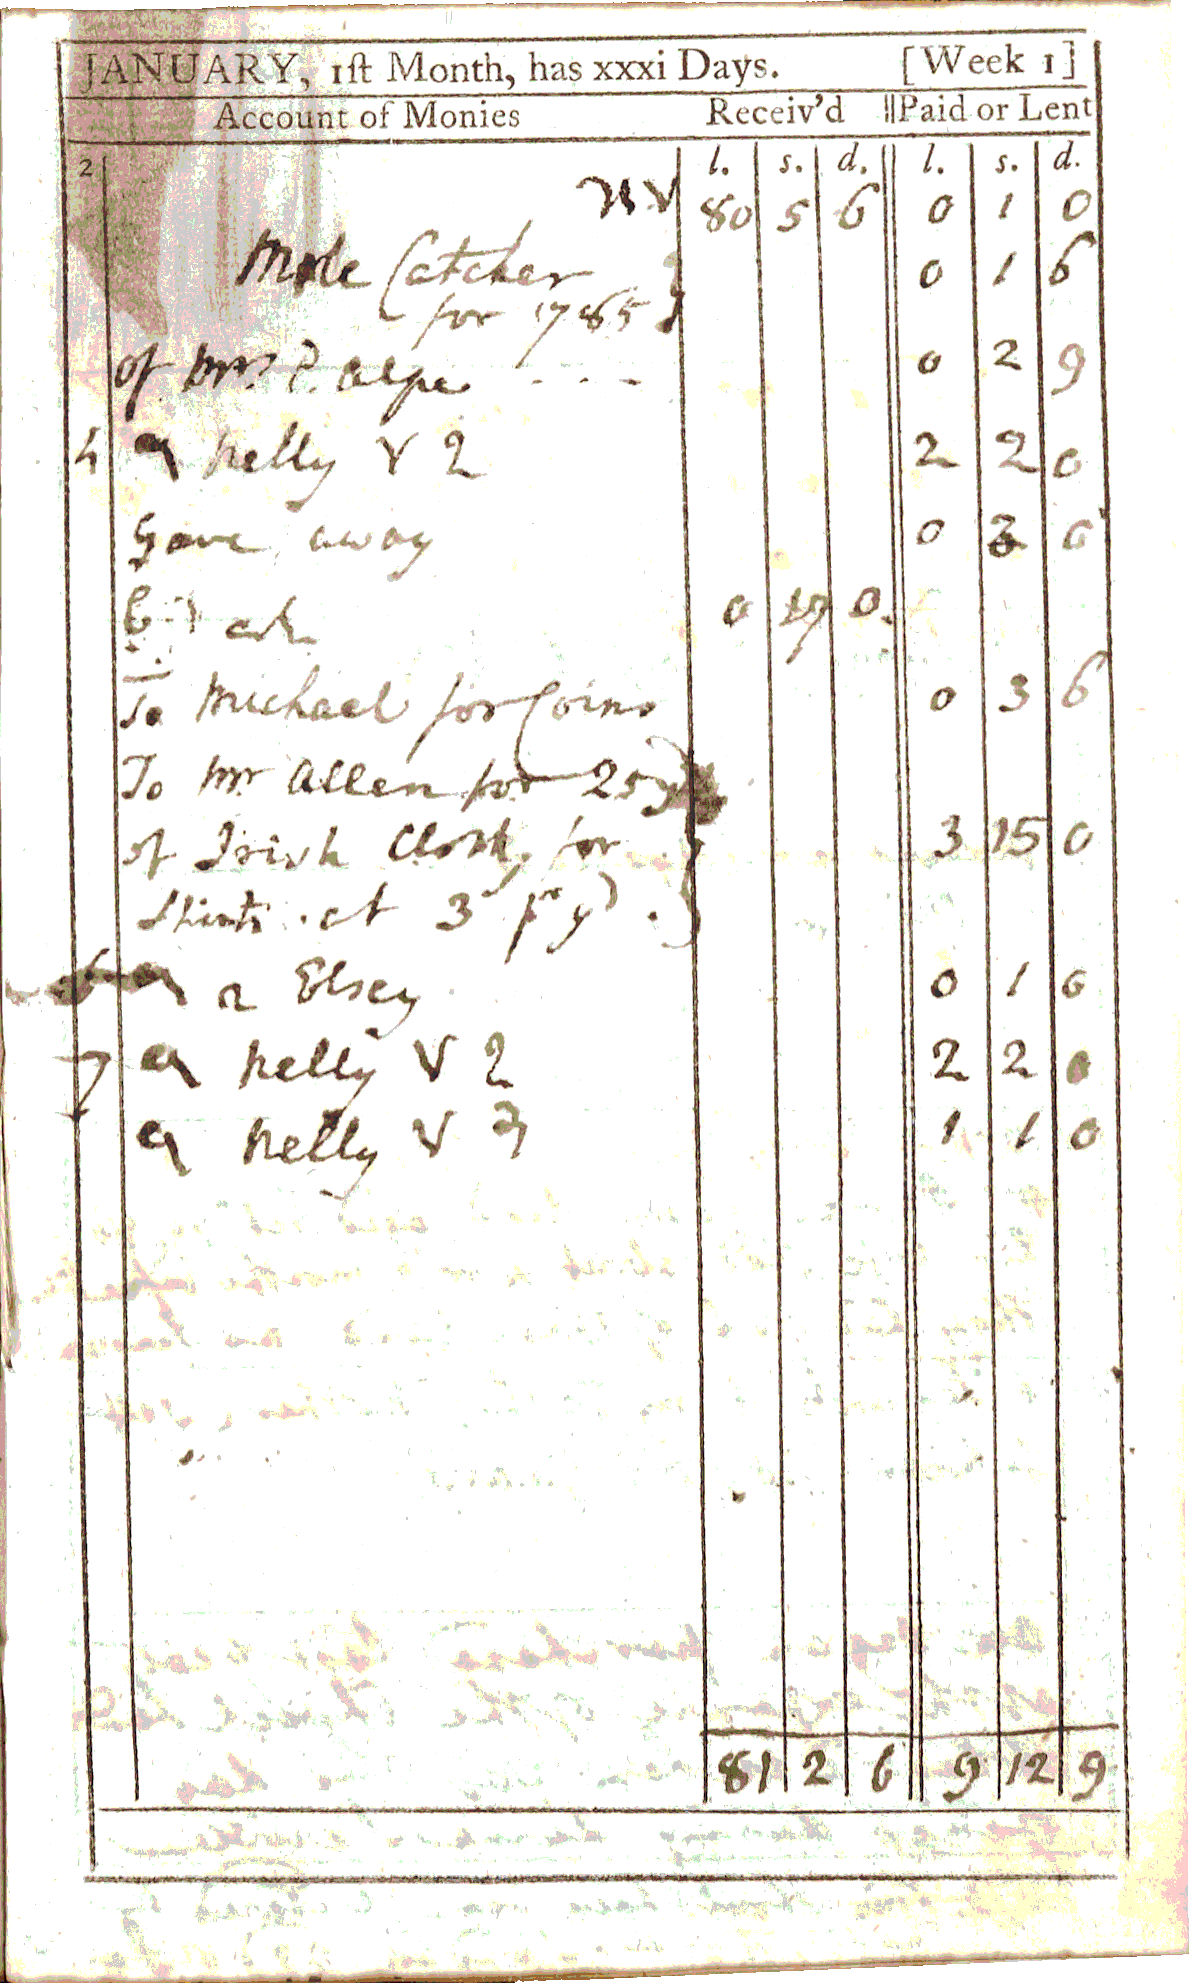 JANUARY, 1ſt Month, has xxxi Days. [Week 1]
Account of Monies Receiv'd Paid or Lent
2 l. s. d. l. s. d.
80 5 6 0 1 0
Mole Catcher 0 1 6
for 1785
of Mrs. P. Alpe - - - 0 2 9
4 a Nelly V 2 2 2 0
Gave away 0 3 0
0 17 0
To Michael for Coins 0 3 6
To Mr Allen for 25 yd
of Irish Cloth for 3 15 0
Shirts . at 3s pr yd .
a Elsey 0 1 0
7 a Nelly V 2 2 2 0
a Nelly V 3 1 1 0
81 2 6 9 12 9